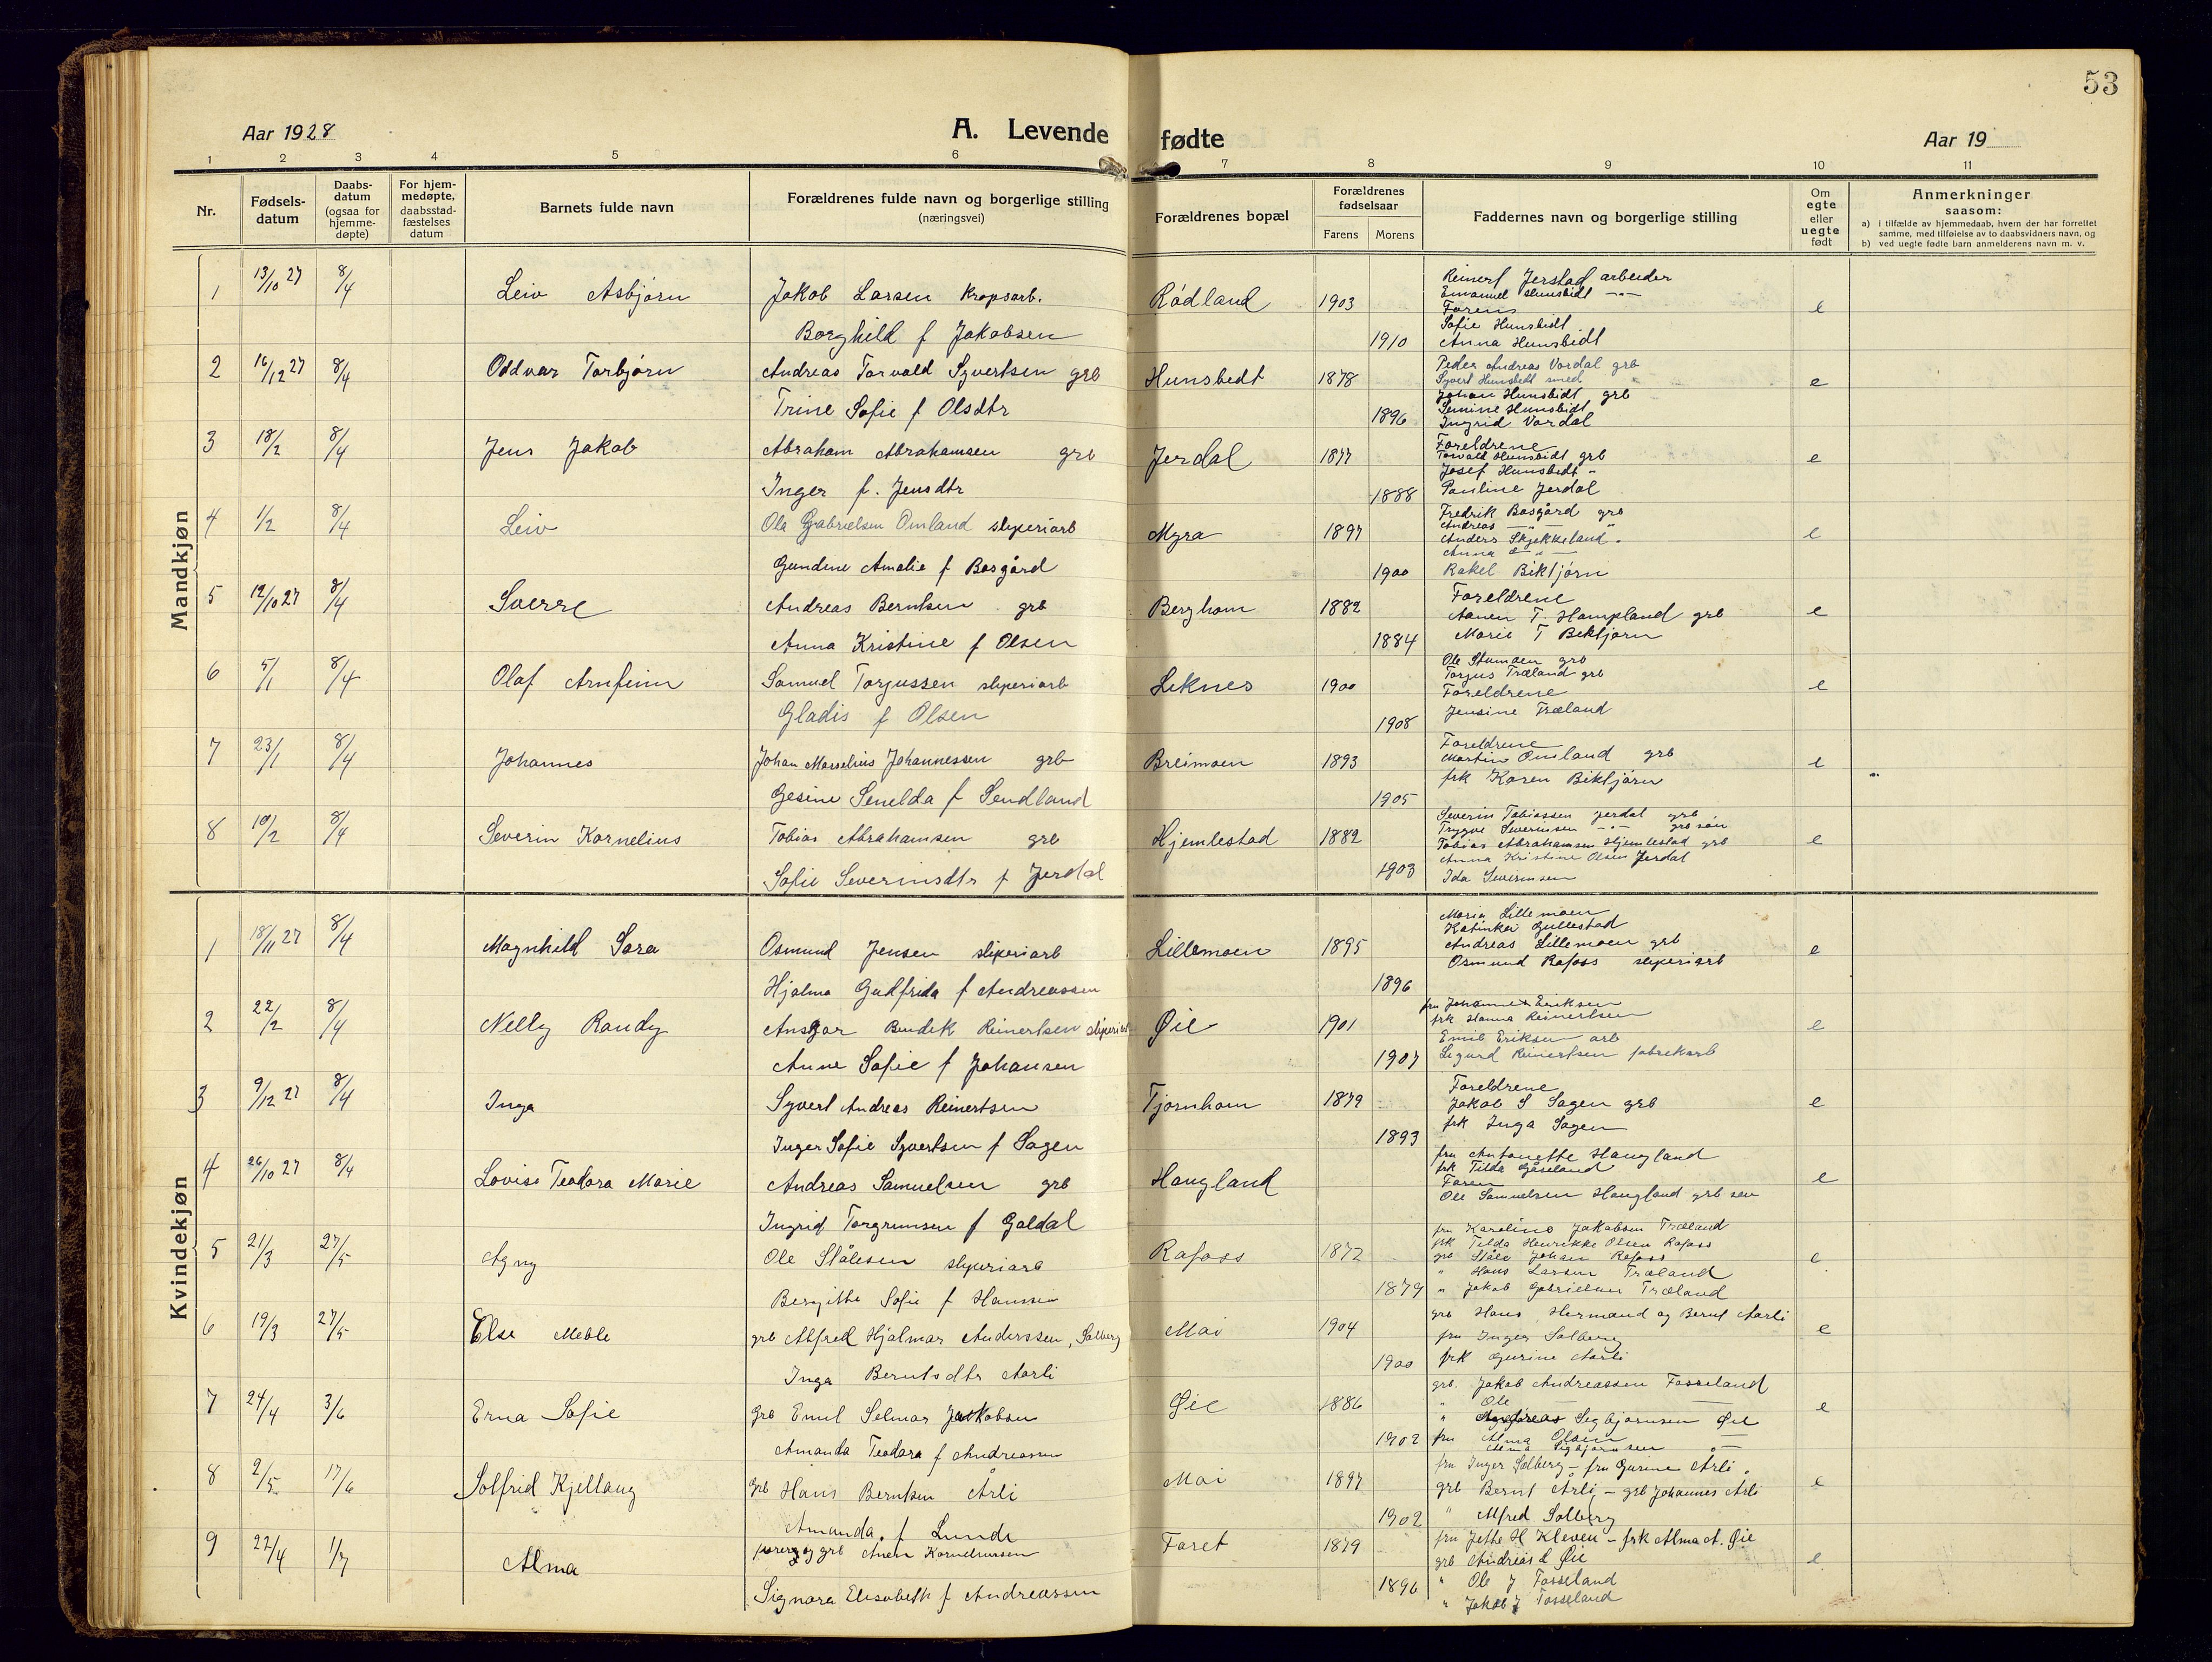 53
Aar 1928
A. Levende fødte
Aar 19
1 2 3 4 5 6 7 8 9 10 11
Nr.
Fødselsdatum
Daabsdatum (ogsaa for hjemmedøpte)
For hjemmedøpte, daabsstadfæstelses datum
Barnets fulde navn
Forældrenes fulde navn og borgerlige stilling (næringsvei)
Forældrenes bopæl
Forældrenes fødselsaar
Farens Morens
Faddernes navn og borgerlige stilling
Om egte eller uegte født
Anmerkninger saasom:
a) i tilfælde av hjemmedaab, hvem der har forrettet samme, med tilføielse av to daabsvidners navn, og
b) ved uegte fødte barn anmelderens navn m. v.
Mandkjøn
1 13/10 27 8/4 Leiv Asbjørn Jakob Larsen Kropsarb. Rødland 1903 e
Borghild f Jakobsen 1910
Reinert Jerstad arbeider
Emanuel Hunsbidt -"-
Faren
Sofie Hunsbidt
Anna Hunsbidt
2 16/12 27 8/4 Oddvar Torbjørn Andreas Torvald Syvertsen grb Hunsbedt 1878 e
Trine Sofie f Olsdtr 1896
Peder Andreas Vordal grb
Syvert Hunsbidt smed
Johan Hunsbidt grb
Semine Hunsbidt
Ingrid Vordal
3 18/2 8/4 Jens Jakob Abraham Abrahamsen grb Jerdal 1877 e
Inger f. Jensdtr 1888
Foreldrene
Torvald Hunsbidt grb
Josef Hunsbidt "
Pauline Jerdal
4 1/2 8/4 Leiv Ola Gabrielsen Omland sliperiarb Myra 1897 e
Gundine Amalie f Bosgård 1900
Fredrik Bosgård grb
Andreas -"- "
Anders Skjekkeland "
Anna -"-
Rakel Biktjørn
5 12/10 27 8/4 Sverre Andreas Berntsen grb Bergham 1882 e
Anna Kristine f Olsen 1884
Foreldrene
Aanen T. Hompland grb
Marie T Bektjørn
6 5/1 8/4 Olaf Arnfinn Samuel Torgussen sliperiarb Liknes 1900 e
Gladis f Olsen 1908
Ole Stamoen grb
Torgus Træland grb
Foreldrene
Jensine Træland
7 23/1 8/4 Johannes Johan Marselius Johannessen grb Breimoen 1893 e
Gesine Senelda f Sendland 1905
Foreldrene
Martin Omland grb
frk Karen Biktjørn
8 10/2 8/4 Severin Kornelius Tobias Abrahamsen grb Hjemlestad 1882 e
Sofie Severinsdtr f Jerdal 1903
Severin Tobiassen Jerdal grb
Trygve Severinsen -"- grb søn
Tobias Abrahamsen Hjemlestad grb
Anna Kristine Olsen Jerdal
Ida Severinsen
Kvindekjøn
1 18/11 27 8/4 Magnhild Sara Osmund Jensen sliperiarb Lillemoen 1895 e
Hjalma Gudfrida f Andreassen 1896
Maria Lillemoen
Katinka Gullestad
Andreas Lillemoen grb
Osmund Rafoss sliperiarb
2 22/2 8/4 Nelly Randy Ansgar Bendik Reinertsen sliperiarb Øie 1901 e
Anne Sofie f Johansen 1907
fru Johanne Eriksen
frk Hanna Reinertsen
Emil Eriksen arb
Sigurd Reinertsen fabrikarb
3 9/12 27 8/4 Inga Syvert Andreas Reinertsen Tjørnhom 1879 e
Inger Sofie Syvertsen f Sagen 1893
Foreldrene
Jakob S Sagen grb
frk Inga Sagen
4 26/10 27 8/4 Lovise Teodora Marie Andreas Samuelsen grb Haugland e
Ingrid Torgrimsen f Galdal
fru Antonette Haugland
frk Tilda Gåseland
Faren
Ole Samuelsen Haugland grb sen
5 21/3 27/5 Agny Ole Stålesen sliperiarb Rafoss 1872 e
Bergitte Sofie f Hansen 1879
fru Karoline Jakobsen Træland
frk Tilda Henrikke Olsen Rafoss
grb Ståle Johan Rafoss
" Hans Larsen Træland
" Jakob Gabrielsen Træland
6 19/3 27/5 Else Meble grb Alfred Hjalmar Anderssen, Solberg Moi 1904 e
Inga Berntsdtr Aarli 1900
grb Hans, Hermand og Bernt Aarli
fru Inger Solberg
frk Gurine Aarli
7 24/4 3/6 Erna Sofie Grb Emil Selmar Jakobsen Øie 1886 e
Amanda Teodora f Andreassen 1902
grb. Jakob Andreassen Fosseland
" Ole — —
" Andreas Segbjørnsen Øie
fru Alma Olsen —
Alma Sigbjørnsen -"-
8 2/5 17/6 Solfrid Kjellaug Grb Hans Berntsen Årli Moi 1897 e
Amanda f Lunde 1902
fru Inger Solberg - fru Gurine Årli
grb Bernt Årli - grb Johannes Årli
" Alfred Solberg
9 22/4 1/7 Alma grb Anen Korneliussen Faret 1879 e
Signora Elisabeth f Andreassen 1896
fru Jette H Kleven - frk Alma A. Øie
grb Andreas A Øie
" Ole J Fosseland
" Jakob J Fosseland